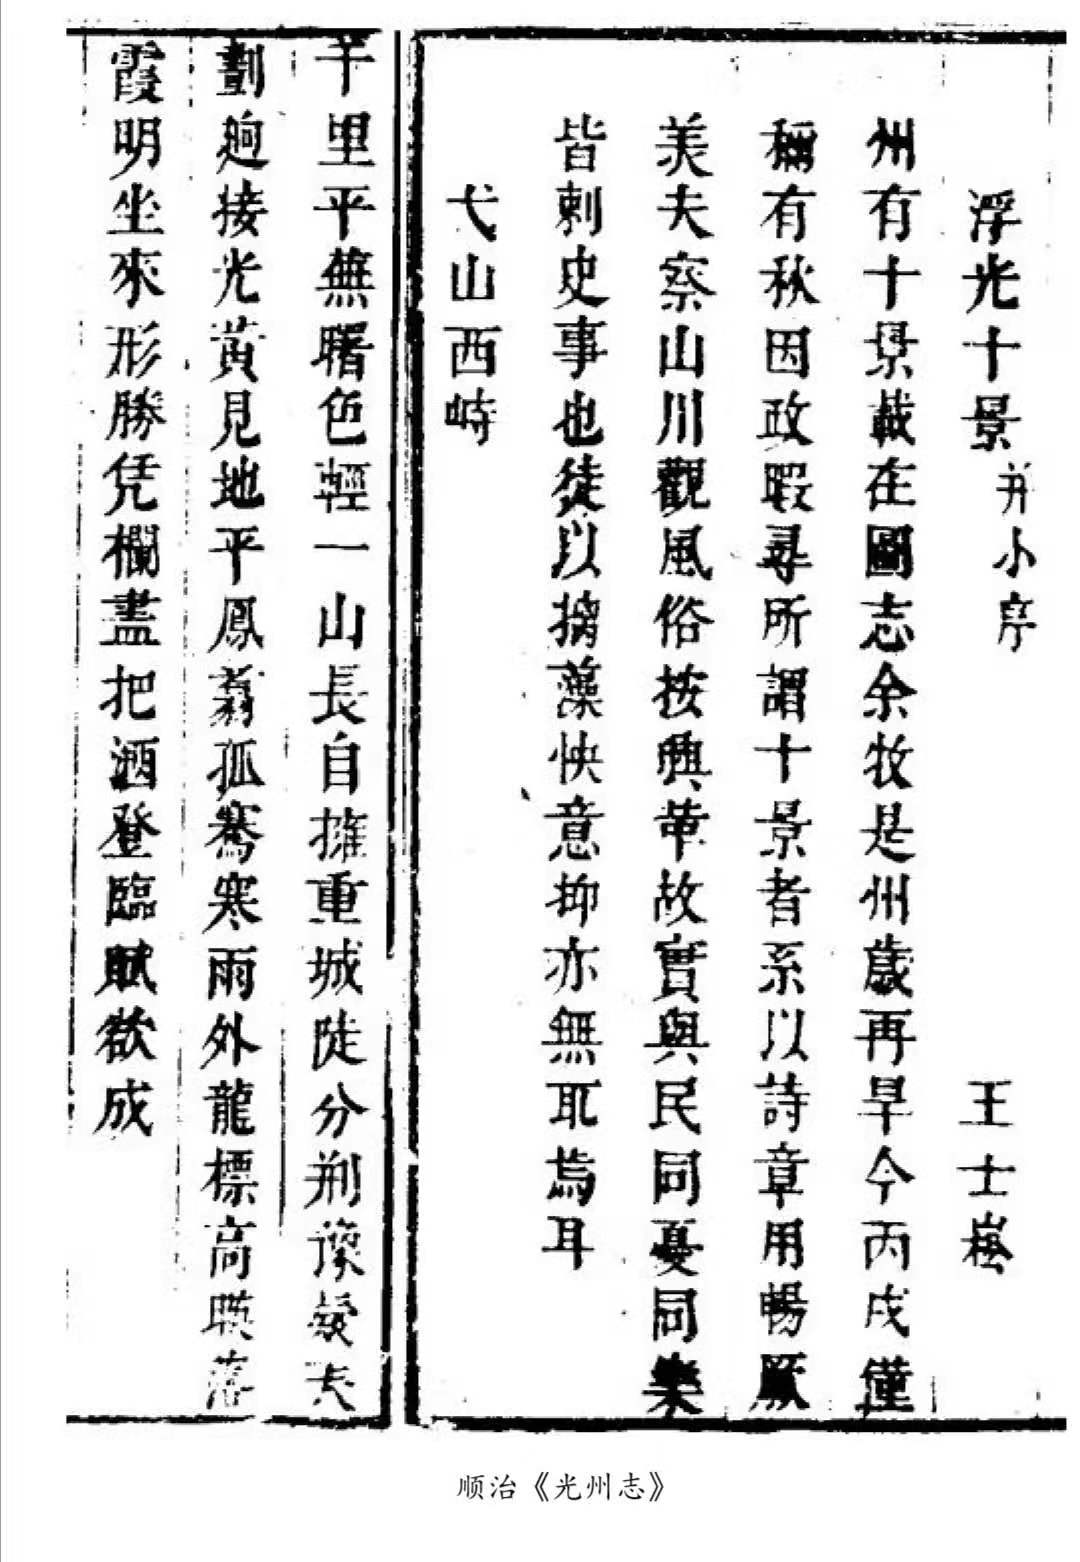 浮光十景并小序 王士崧
州有十景載在圖志余牧是州歲再旱今丙戌僅
稱有秋因政暇尋所謂十景者系以詩章用暢厥
美夫察山川觀風俗按興革故實與民同憂同樂
皆刺史事也徒以摛藻快意抑亦無取焉耳
弋山西峙
千里平蕪曙色輕一山長自擁重城陡分荆豫天
劃廻接光黃見地平鳳翥孤騫寒雨外龍標高暎落
霞明坐來形勝凭欄盡把酒登臨賦欲成
顺治《光州志》